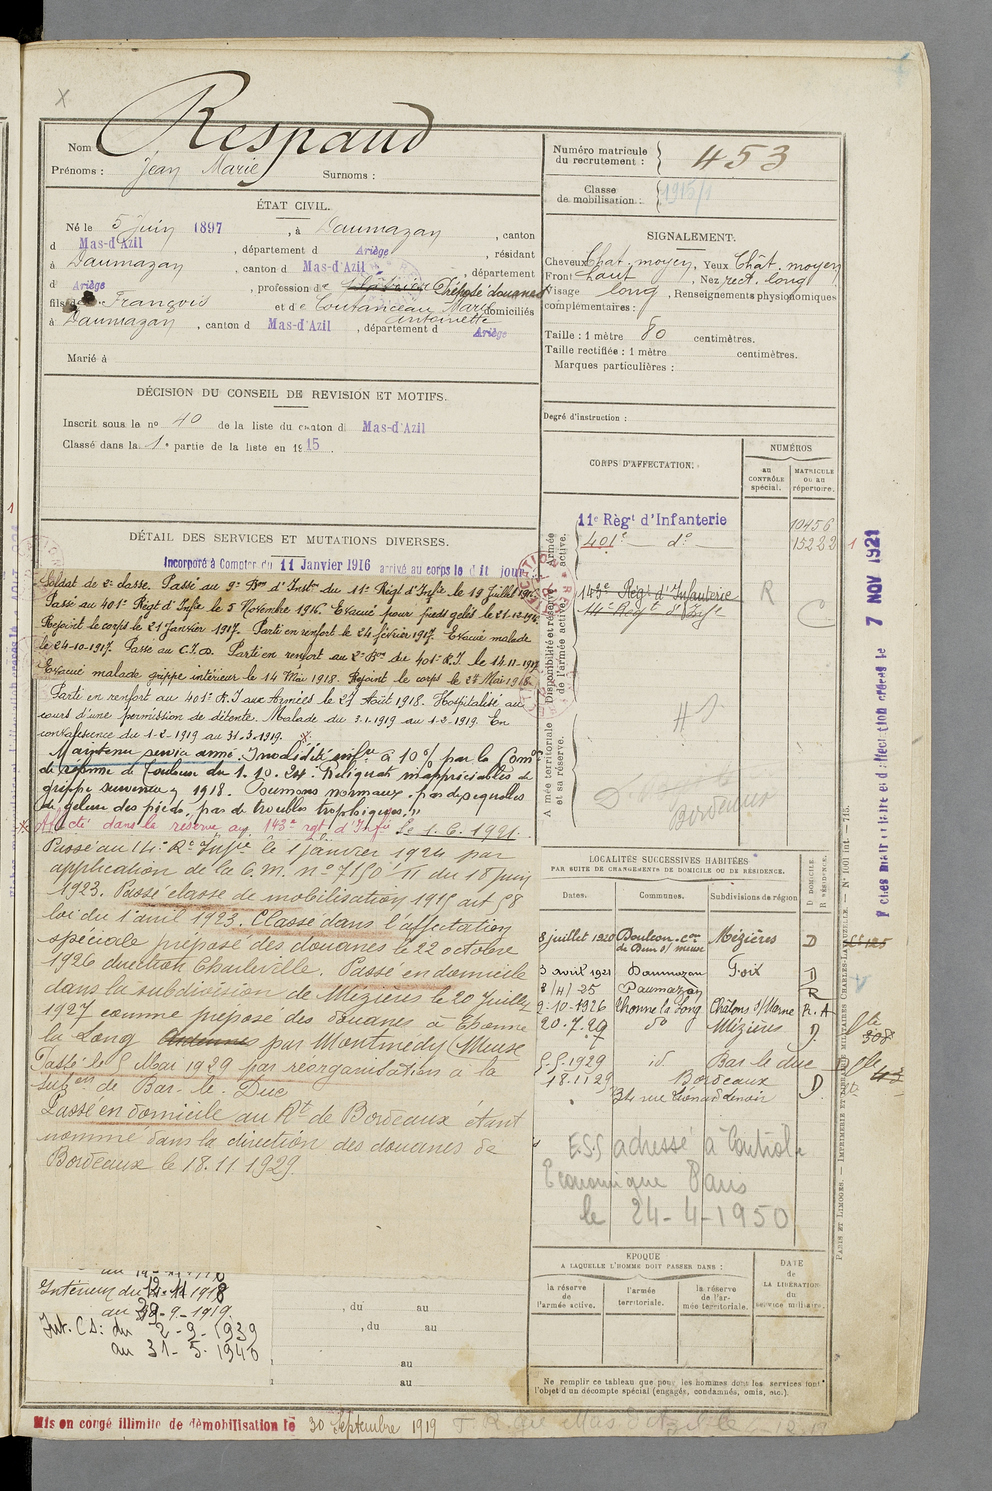 Respaud
Nom
Prénoms : Jean Marie Surnoms :
ÉTAT CIVIL.
Né le 5 Juin 1897, à Daumazan, canton
d Mas-d'Azil, département d Ariège, résidant
à Daumazan, canton d Mas-d'Azil, département
d' Ariège, profession de Préposé douanes
fils de François et de Coutanceau Marie Antoinette domiciliés
à Daumazan, canton d Mas-d'Azil, département d Ariège
Marié à
DÉCISION DU CONSEIL DE REVISION ET MOTIFS.
Inscrit sous le no 40 de la liste du canton d Mas-d'Azil
Classé dans la 1e partie de la liste en 1915.
DÉTAIL DES SERVICES ET MUTATIONS DIVERSES.
Incorporé à Compter du 11 Janvier 1916 arrivé au corps le dit jour
Soldat de 2e classe. Passé au 9e Bon d'Inston du 11e Régt d'Infie le 19 Juillet 1916
Passé au 401e Régt d'Infie le 5 Novembre 1916. Evacué pour pieds gelés le 21-12-1916
Rejoint le corps le 21 Janvier 1917. Parti en renfort le 24 février 1917. Evacué malade
le 24-10-1917. Passé au C.I.D. Parti en renfort au 2e Bon du 401e R.I. le 14-11-1917
Evacué malade grippe intérieur le 14 Mai 1918. Rejoint le corps le 27 Mai 1918
Parti en renfort au 401e R.I aux Armées le 27 Août 1918. Hospitalisé au
cours d'une permission de détente. Malade du 3.1.1919 au 1-2-1919. En
convalescence du 1-2-1919 au 31-3-1919.
Maintenu service armé. Invalidité infre à 10% par la Comon
de réforme de Toulouse du 1.10.24. Reliquats inappréciables de
grippe survenue 1918. Poumons normaux. pas de séquelles
de gelure des pieds, pas de troubles trophiques."
Affecté dans la réserve au 143e rgt d'Infie le 1.6.1921.
Passé au 14e Rt Infie le 1 Janvier 1924 par
application de la C.M. no 7150 11 du 18 juin
1923. Passé classe de mobilisation 1915 art 58
loi du 1 avril 1923. Classé dans l'affectation
spéciale préposé des douanes le 22 octobre
1926 direction Charleville. Passé en domicile
dans la subdivision de Mézières le 20 Juillet
1927 comme préposé des douanes à Thonne
la Long par Montmedy (Meuse
Passé le 5 Mai 1929 par réorganisation à la
subon de Bar-le-Duc
Passé en domicile au Rt de Bordeaux étant
nommé dans la direction des douanes de
Bordeaux le 18.11 1929
Intérieur du 12-11 1918
au 29-9-1919
Int. CS: du 2-9-1939
au 31-5-1940
, du au
, du au
au
au
Mis en congé illimité de démobilisation le 30 Septembre 1919
Numéro matricule du recrutement : 453
Classe de mobilisation : 1915/1
SIGNALEMENT.
Cheveux Chat. moyen, Yeux Chât. moyen
Front haut, Nez rect. long
Visage long, Renseignements physionomiques
complémentaires :
Taille : 1 mètre 80 centimètres.
Taille rectifiée : 1 mètre centimètres.
Marques particulières :
Degré d'instruction :
CORPS D'AFFECTATION.
NUMÉROS
au CONTRÔLE spécial.
MATRICULE ou au répertoire.
Armée active.
11e Régt d'Infanterie 10456
401e do 15222
Disponibilité et réserve de l'armée active.
143e Régt d'Infanterie R
14e Régt d'Infie C
Armée territoriale et sa réserve.
Bordeaux
LOCALITÉS SUCCESSIVES HABITÉES
PAR SUITE DE CHANGEMENTS DE DOMICILE OU DE RÉSIDENCE.
Dates. Communes. Subdivisions de région D DOMICILE R RÉSIDENCE.
8 juillet 1920 Mézières D
3 avril 1921 Daumazan Foix D
8/4/25 Daumazan R
2-10-1926 Thonne la Long Châlons s/Marne R.A
20.7.29 do Mézières D.
5.5.1929 id. Bar le duc D
18.11 29 Bordeaux D.
E.S.S adressé à Contrôle
Economique Paris
le 24-4-1950
EPOQUE
A LAQUELLE L'HOMME DOIT PASSER DANS :
la réserve de l'armée active.
l'armée territoriale.
la réserve de l'armée territoriale.
DATE de LA LIBÉRATION du service militaire.
Ne remplir ce tableau que pour les hommes dont les services font
l'objet d'un décompte spécial (engagés, condamnés, omis, etc.).
PARIS ET LIMOGES. — IMPRIMERIE ET LIBRAIRIE MILITAIRES CHARLES-LAVAUZELLE. — N° 1001 int. — 715.
7 NOV 1921